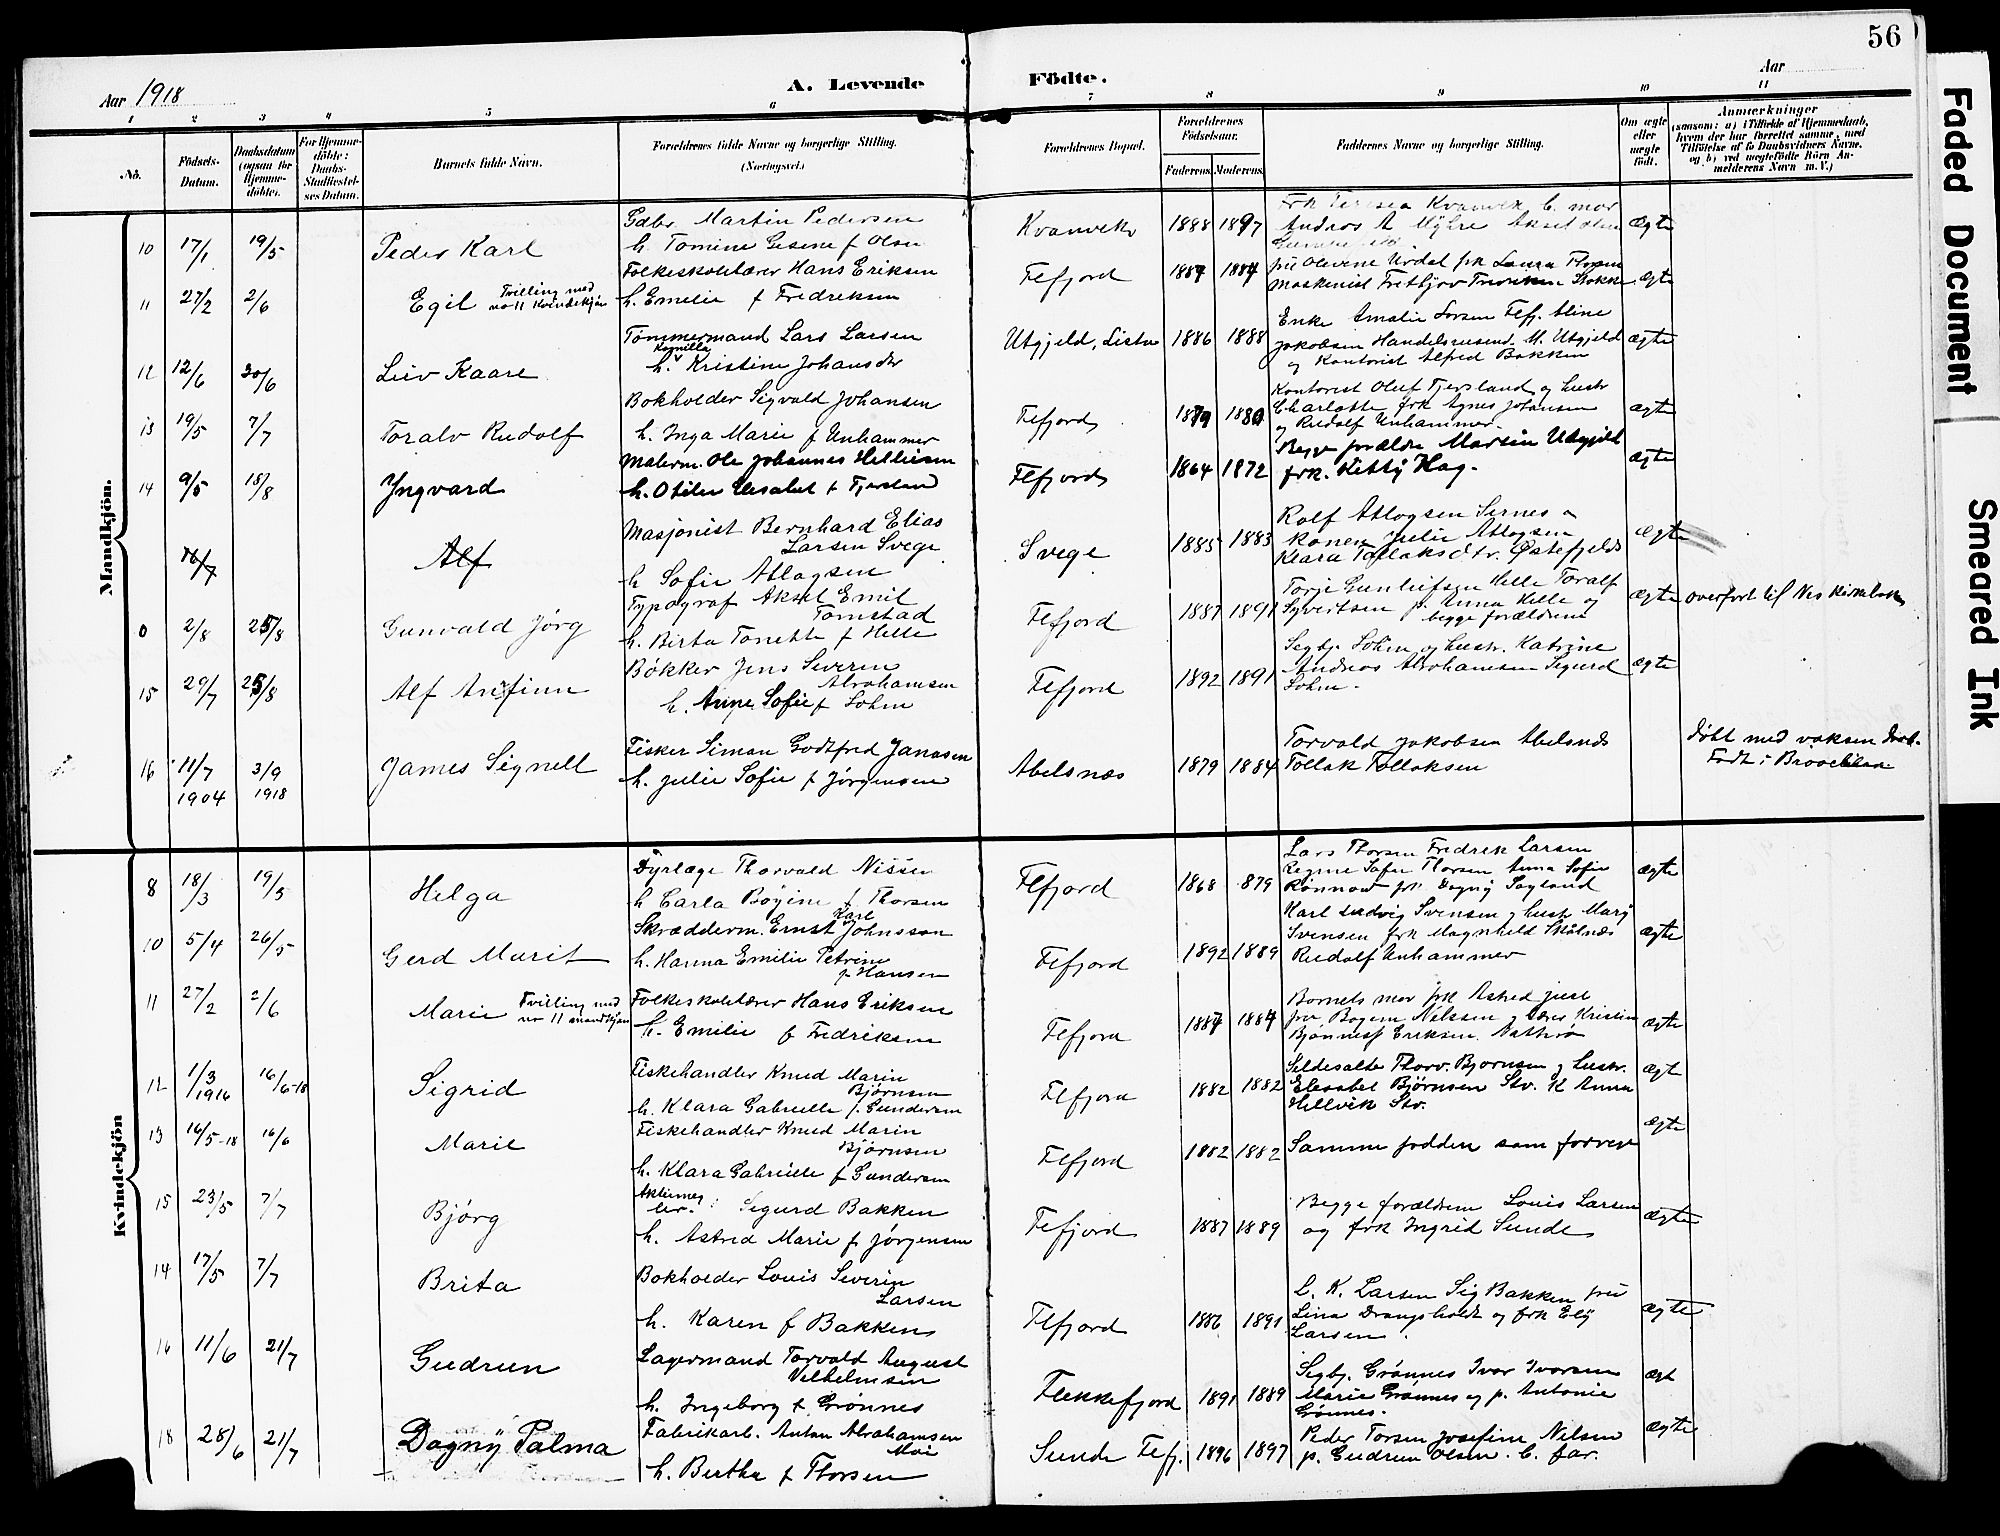 56
Aar 1918
A. Levende Födte.
Aar
1 2 3 4 5 6 7 8 9 10 11
No.
Födsels-Datum.
Daabsdatum (ogsaa for Hjemmedöbte).
For Hjemmedöbte: Daabs-Stadfæstelses Datum.
Barnets fulde Navn.
Forældrenes fulde Navne og borgerlige Stilling. (Næringsvei.)
Forældrenes Bopæl.
Forældrenes Födselsaar.
Faderens. Moderens.
Faddernes Navne og borgerlige Stilling.
Om ægte eller uægte födt.
Anmærkninger
(saasom: a) i Tilfælde af Hjemmedaab, hvem der har forrettet samme, med Tilföielse af to Daabsvidners Navne. og b) ved uægtefödte Börn Anmelderens Navn m. V.)
Mandkjön.
10 17/1 19/5 Peder Karl
Gdbr Martin Pedersen
h. Tomine Gesene f Olsen
Kvanvik 1888 1897
Frk Teresea Kvanvik b. mor
Andreas A Myhre Aksel Olsen
ægte
11 27/2 2/6 Egil Tvilling med no 11 Kvindekjøn
Folkeskolelærer Hans Eriksen
h. Emelie f Fredriksen
Flfjord 1887 1884
fru Olevine Urdal frk Laura Thorsen
Maskinist Fritjov Stokke
ægte
12 12/6 30/6 Leiv Kaare
Tømmermand Lars Larsen
h. Kamilla Kristine Johansdtr
Utgjeld, Lista 1886 1888
Enke Amalie Larsen Flfj. Aline
Jakobsen Handelsreisend. M. Utgjeld
og Kontorist Alfred Bakken
ægte
13 19/5 7/7 Toralv Rudolf
Bokholder Sigvald Johansen
h. Inga Marie f Unhammer
Flfjord 1879 1880
Kontorist Oluf Tjersland og hustr
Charlotte frk Agnes Johansen
og Rudolf Unhammer.
ægte
14 9/5 18/8 Yngvard
Malerm. Ole Johannes Helliesen
h. Otilie Elesabet f Tjersland
Flfjord 1864 1872
Begge forældre Martin Utgjeld
frk. Kitty Hag.
ægte
16/7 Alf
Masjonist Bernhard Elias
Larsen Svege
h Sofie Atlagsen
Svege 1885 1883
Rolf Atlogsen Sirnes o
konen Julie Atlogsen
Klara Tollaksdtr. Østefjeld
ægte
0 2/8 25/8 Gunvald Jørg
Typograf Aksel Emil
Tomstad
h. Birta Tonette f Helle
Flfjord 1887 1891
Torje Gunleifsen Helle Toralf
Syvertsen p. Anna Helle og
begge forældrene
ægte overført til Nes kirkebok
15 29/7 25/8 Alf Arnfinn
Bøkker Jens Severin
Abrahamsen
h. Anne Sofie f Lohm
Flfjord 1892 1891
Segbj. Lohm og hustr. Katrine
Andreas Abrahamsen Sigurd
Lohm.
ægte
16 11/7 1904 3/9 1918 James Signell
Fisker Simon Godtfred Janasen
h. Julie Sofie f Jørgensen
Abelsnæs 1879 1884
Torvald Jakobsen Abelsnæs
Tollak Tollaksen
døbt med voksen daab.
Født i Brooklin
Kvindekjön
8 18/3 19/5 Helga
Dyrlæge Thorvald Nissen
h Carla Bøgine f Thorsen
Flfjord 1868 1879
Lars Thorsen Fredrik Larsen
Regine Sofie Thorsen Anna Sofie
Rønnow frk Dagny Sagland
ægte
10 5/4 26/5 Gerd Marit
Skrædderm. Ernst Karl Johnsson
h. Hanna Emilie Petrine
f. Hansen
Flfjord 1892 1889
Karl Ludvig Svensen og hust Mary
Svensen frk Magnhild Skålnæs
Rudolf Unhammer
ægte
11 27/2 2/6 Marie Tvilling med no 11 mandkjøn
Folkeskolelærer Hans Eriksen
h. Emilie f Fredriksen
Flfjord 1887 1884
Barnets mor frk Astrid Juel
fru Bogem Nilssen og lærer Kristin
Bjønnes Eriksen
ægte
12 1/3 1916 16/6-18 Sigrid
Fiskehandler Knud Marin
Bjørnsen
h. Klara Gabrielle f. Gundersen
Flfjord 1882 1882
Sildesalte Thorv. Bjørnsen og hustr.
Elesabet Bjørnsen Stv. K Anna
Hellvik Stv.
ægt
13 16/5-18 16/6 Marie
Fiskehandler Knud Marin
Bjørnsen
h. Klara Gabrielle f Gundersen
Flfjord 1882 1882
Samme faddere som forrige
ægte
15 23/5 7/7 Bjørg
Sigurd Bakken
h. Astrid Marie f Jørgensen
Flfjord 1887 1889
Begge forældrene Louis Larsen
og frk Ingrid Sunde
ægte
14 17/5 7/7 Brita
Bokholder Louis Severin
Larsen
h. Karen f Bakken
Flfjord 1886 1891
L. K. Larsen Sig Bakken fru
Lina Drangsholdt og frk Ely
Larsen.
ægte
16 11/6 21/7 Gudrun
Lagermand Torvald August
Velhelmsen
h. Ingeborg f Grønnes
Flekkefjord 1891 1889
Segbj. Grønnes Ivar Ivarsen
Marie Grønnes og p. Antonie
Grønnes.
ægt
18 28/6 21/7 Dagny Palma
Fabrikarb. Anton Abrahamsen
Moi
h. Berthe f Thorsen
Sunde Flfj. 1896 1897
Peder Torsen Josefine Nilsen
p. Gudrun Olsen. b. far.
ægte
Faded Document
Smeared Ink